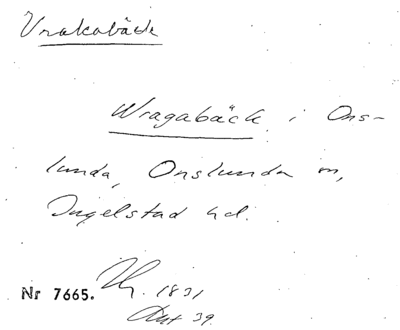 Vrakabäck
Wragabäck i Ons-
lunda, Onslunda sn,
Ingelstad hd.
Nr 7665. 1831
Akt 39